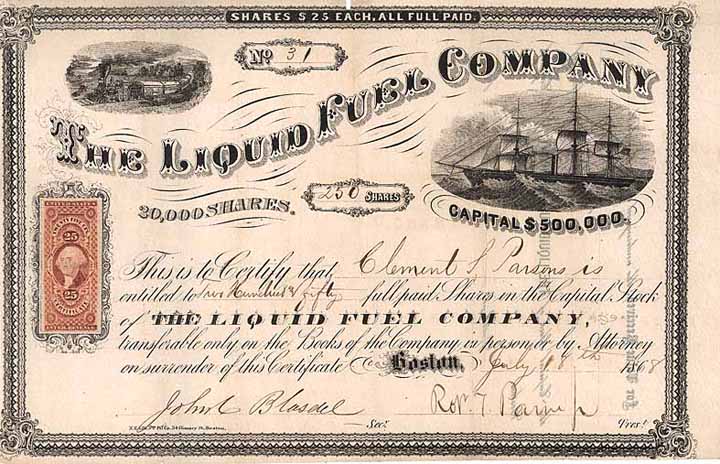 SHARES $25 EACH, ALL FULL PAID.
No 31
THE LIQUID FUEL COMPANY
250 SHARES
20,000 SHARES.
CAPITAL $500,000.
25
25
CERTIFICATE
This is to Certify that Clement S Parsons is
entitled to Two Hundred & fifty full paid Shares in the Capital Stock
of THE LIQUID FUEL COMPANY,
transferable only on the Books of the Company in person or by Attorney
on surrender of this Certificate Boston, July 18th 1868
John C Blasdel Secy. Robt. T. Pres!